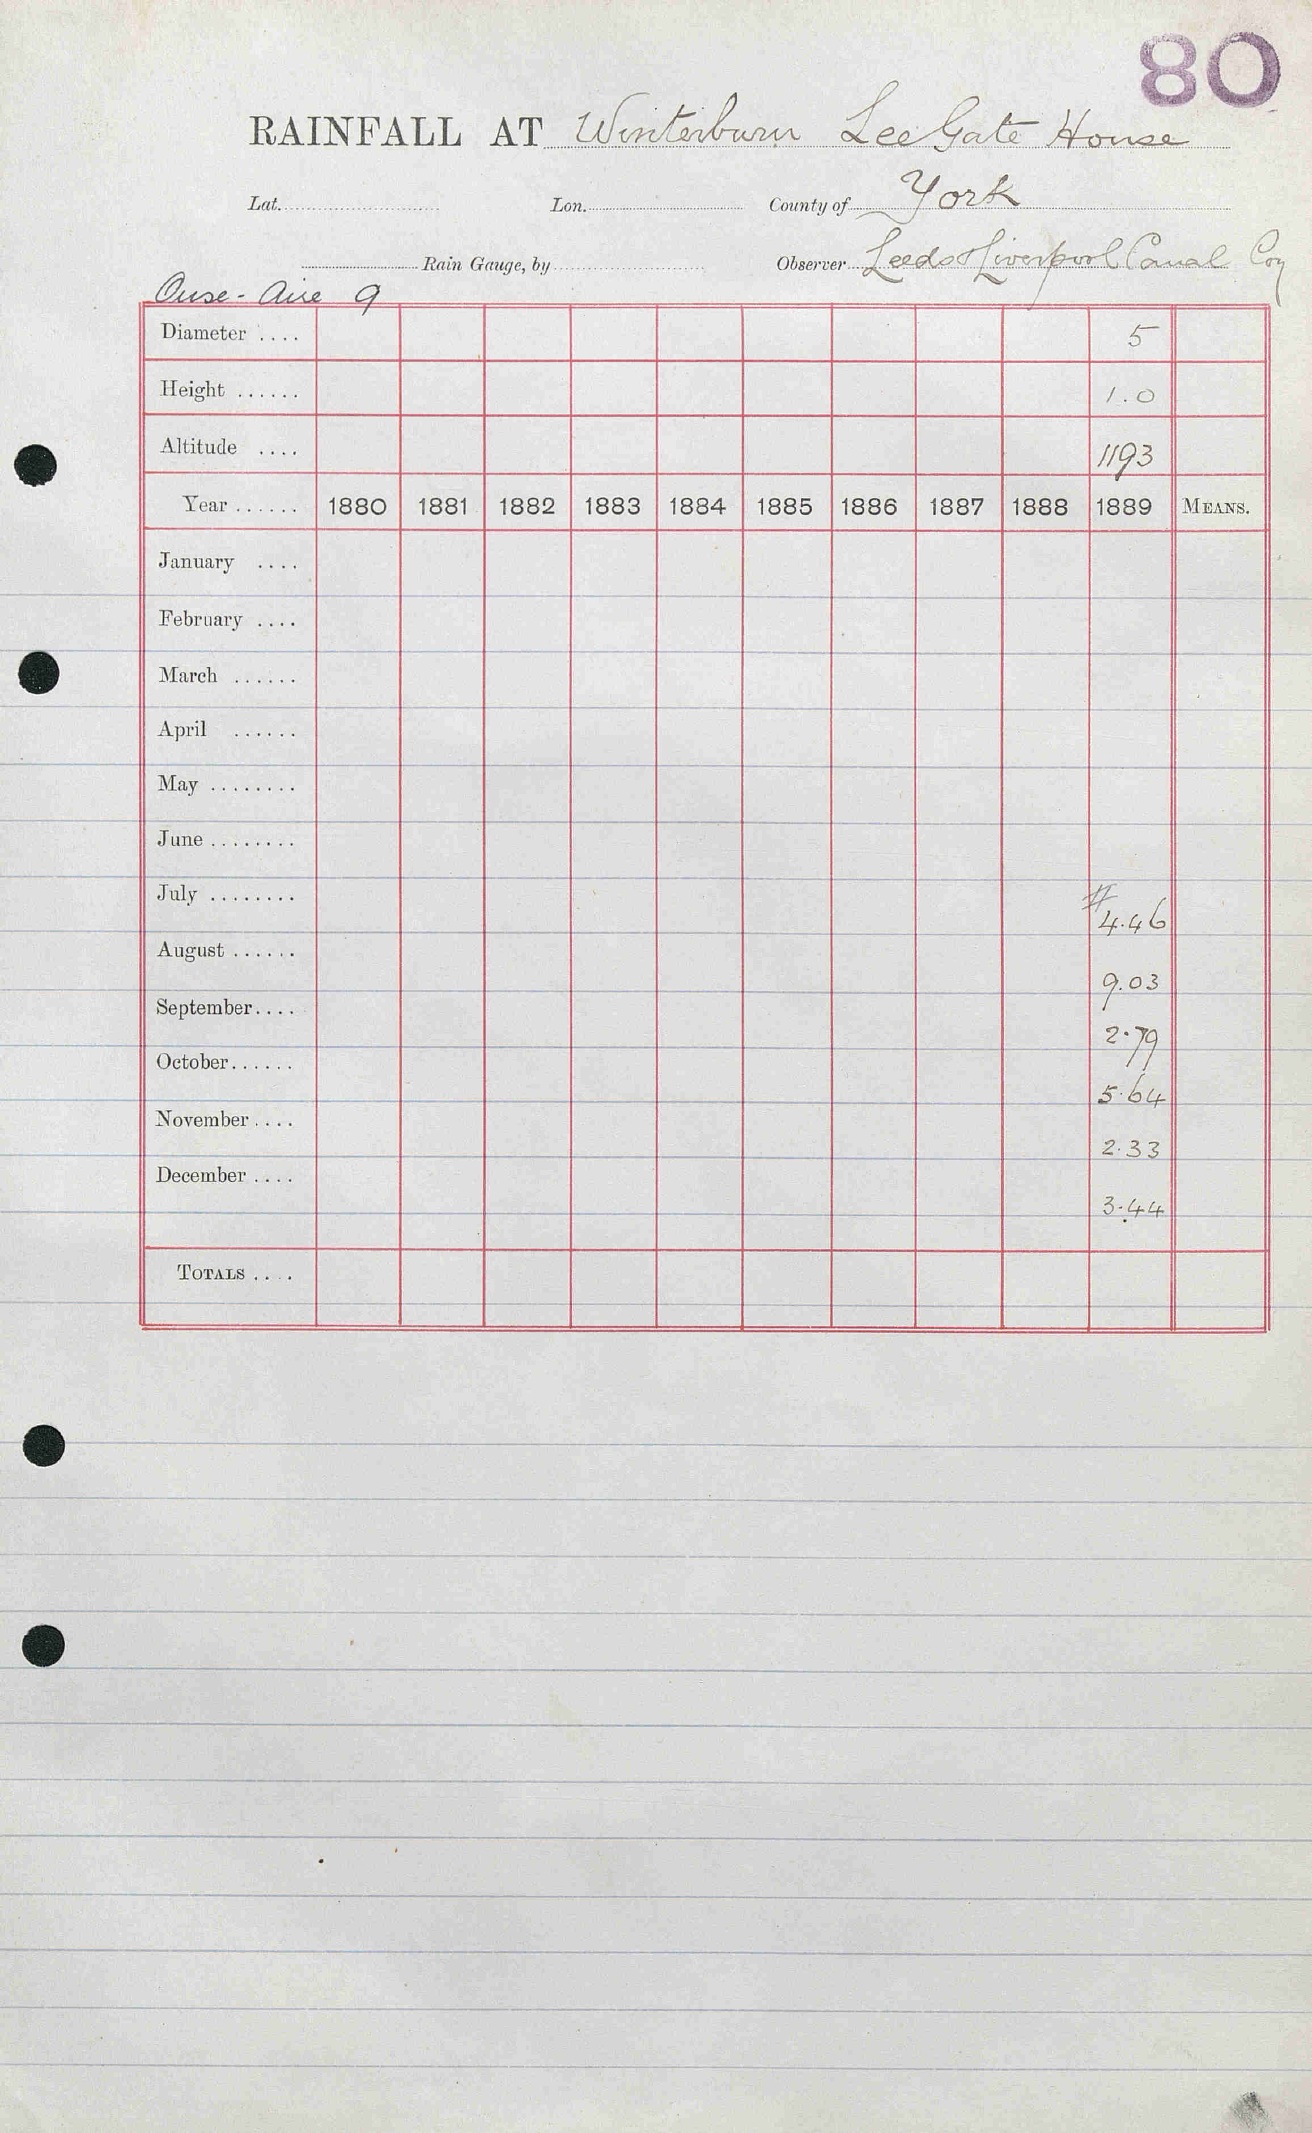 80
RAINFALL AT Winterburn Lee Gate House
Lat. Lon. County of York
Rain Gauge, by Observer Leeds & Liverpool Canal Coy
Ouse - Aire 9
Diameter .... 5
Height ...... 1.0
Altitude .... 1193
Year ...... 1880 1881 1882 1883 1884 1885 1886 1887 1888 1889 MEANS.
January ....
February ....
March ......
April ......
May ........
June ........
July ........ # 4.46
August ...... 9.03
September.... 2.79
October...... 5.64
November.... 2.33
December .... 3.44
TOTALS ....